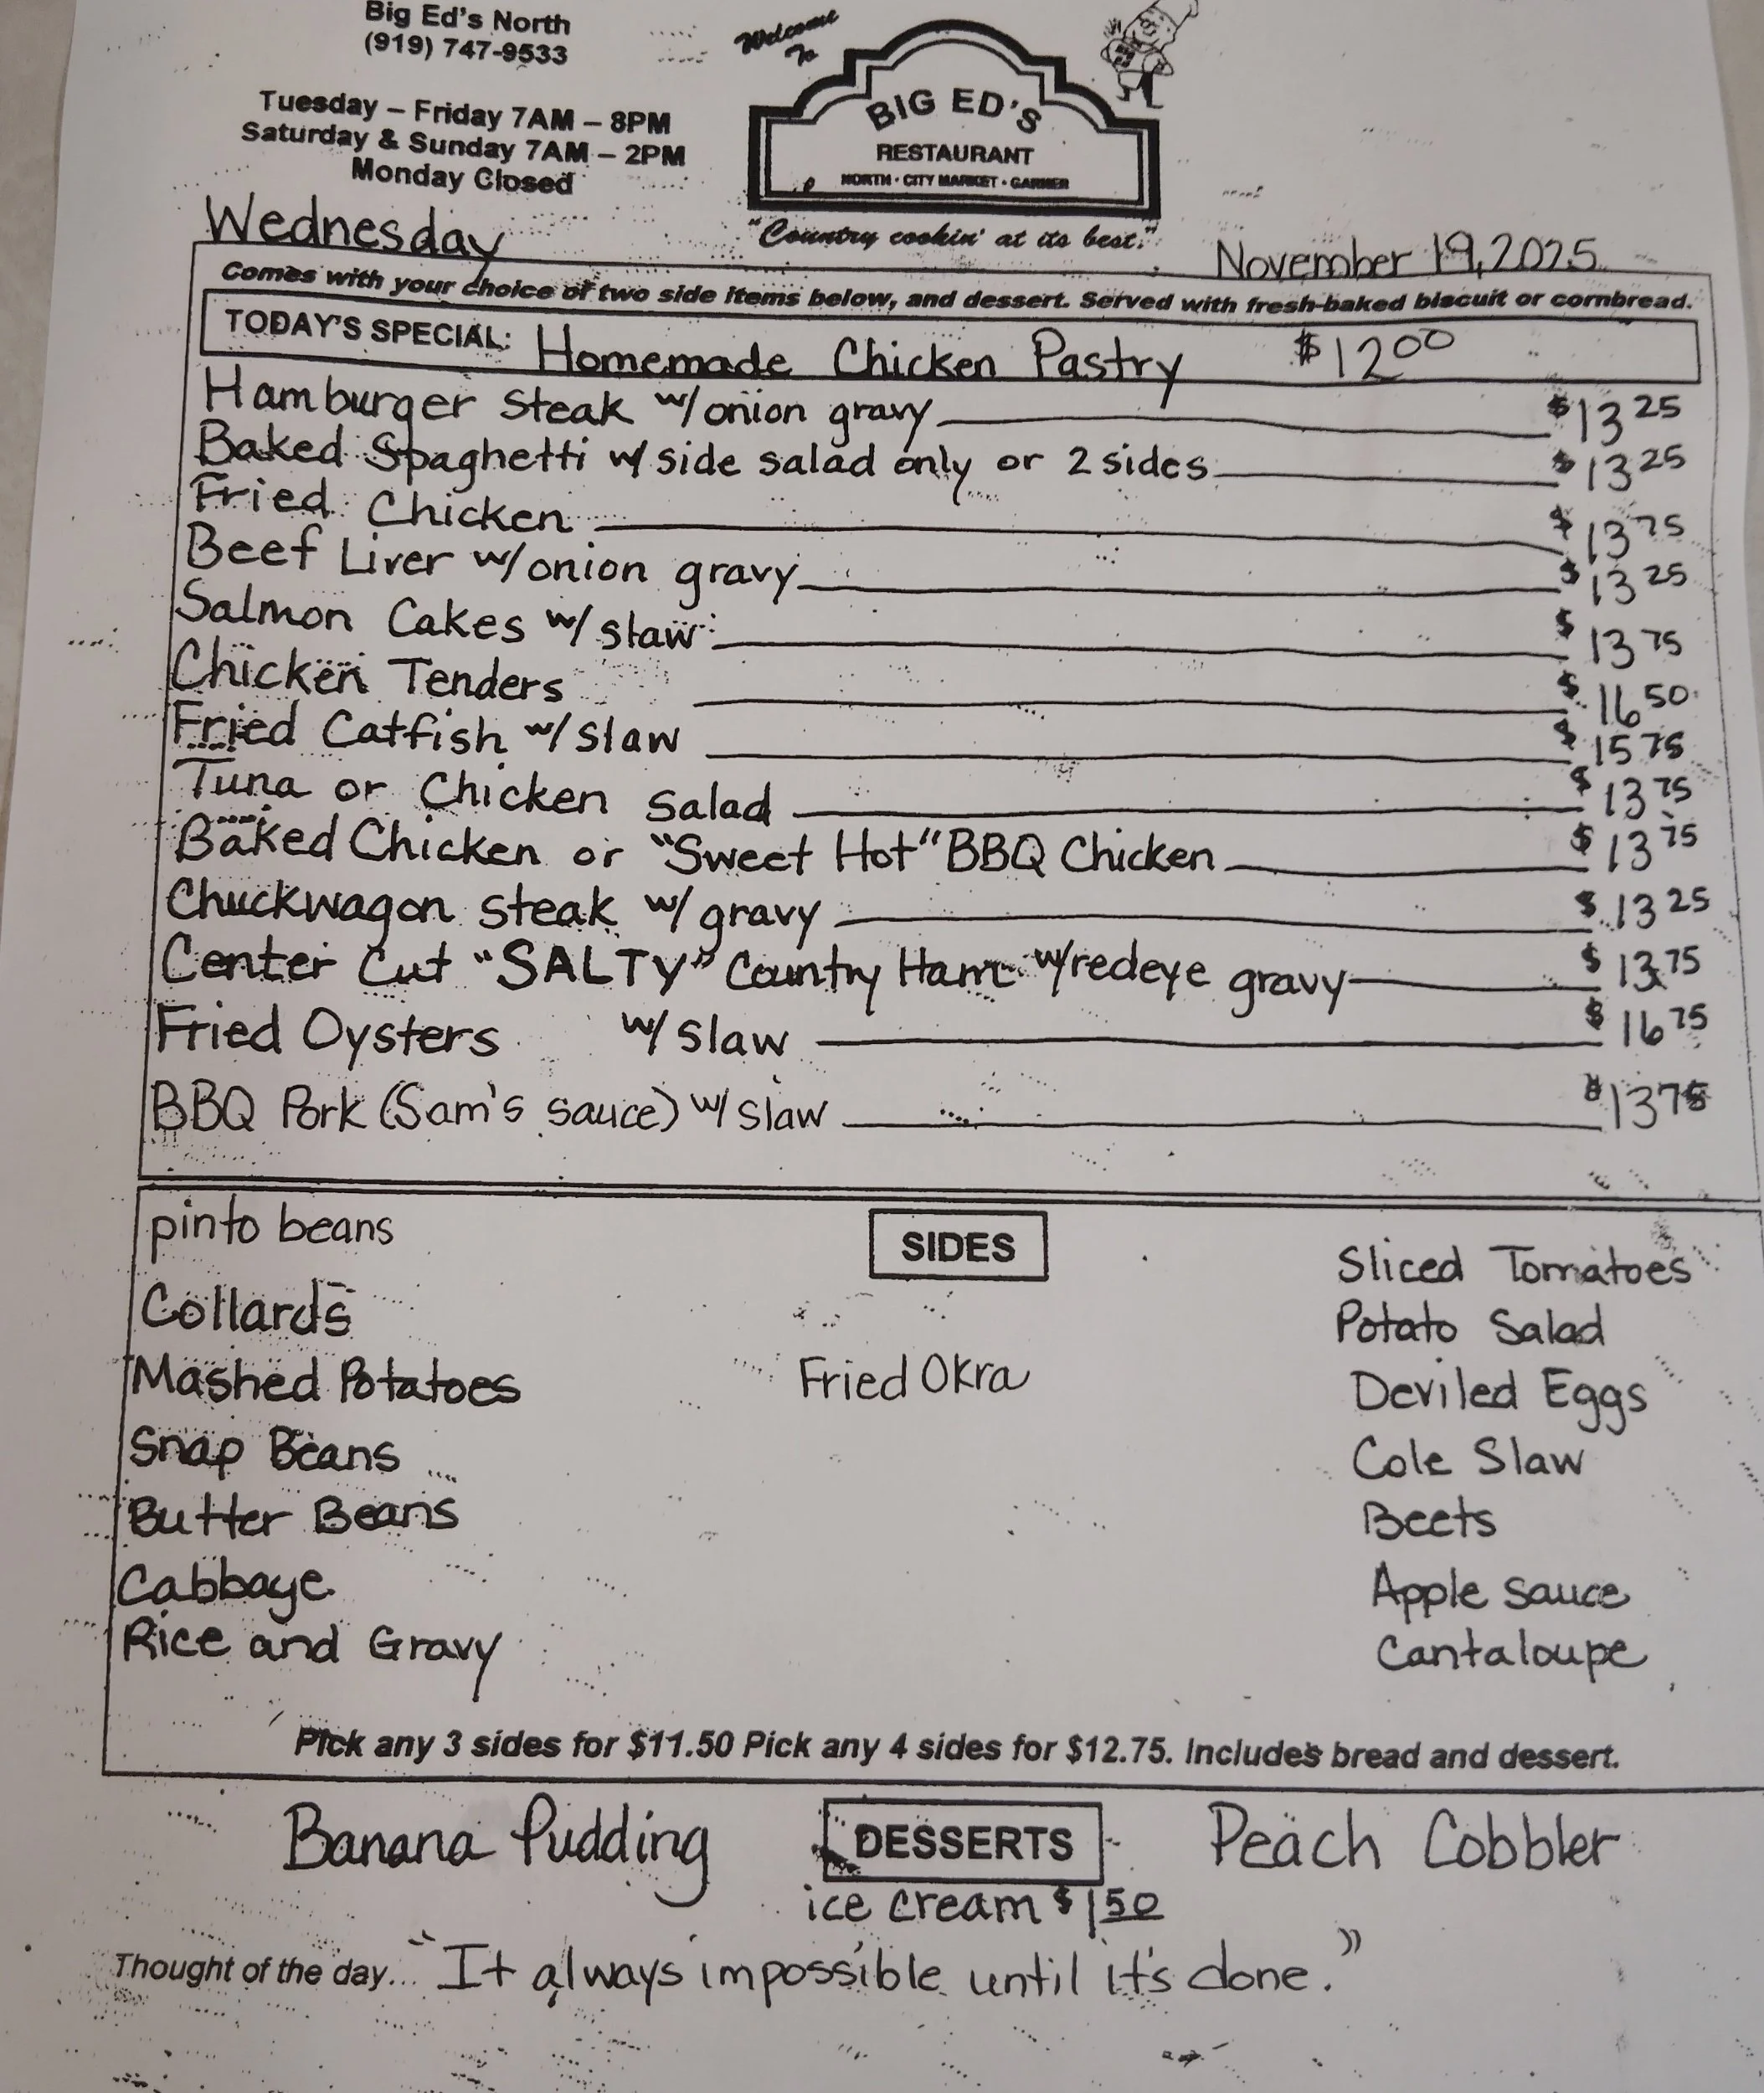 Big Ed's North
(919) 747-9533
Tuesday – Friday 7AM – 8PM
Saturday & Sunday 7AM – 2PM
Monday Closed
Welcome
To
BIG ED'S
RESTAURANT
NORTH · CITY MARKET · GARNER
"Country cookin' at its best."
Wednesday
November 19, 2025
Comes with your choice of two side items below, and dessert. Served with fresh-baked biscuit or cornbread.
TODAY'S SPECIAL: Homemade Chicken Pastry $12 00
Hamburger Steak w/onion gravy $13 25
Baked Spaghetti w/ side salad only or 2 sides $13 25
Fried Chicken $13 75
Beef Liver w/onion gravy $13 25
Salmon Cakes w/ slaw $13 75
Chicken Tenders $16 50
Fried Catfish w/ slaw $15 75
Tuna or Chicken salad $13 75
Baked Chicken or "Sweet Hot" BBQ Chicken $13 75
Chuckwagon steak w/ gravy $13 25
Center Cut "SALTY" Country Ham w/redeye gravy $13 75
Fried Oysters w/ slaw $16 75
BBQ Pork (Sam's sauce) w/ slaw $13 75
SIDES
pinto beans
Collards
Mashed Potatoes
Snap Beans
Butter Beans
Cabbage
Rice and Gravy
Fried Okra
Sliced Tomatoes
Potato Salad
Deviled Eggs
Cole Slaw
Beets
Apple sauce
Cantaloupe
Pick any 3 sides for $11.50 Pick any 4 sides for $12.75. Includes bread and dessert.
Banana Pudding DESSERTS Peach Cobbler
ice cream $1 50
Thought of the day... "It always impossible until it's done."